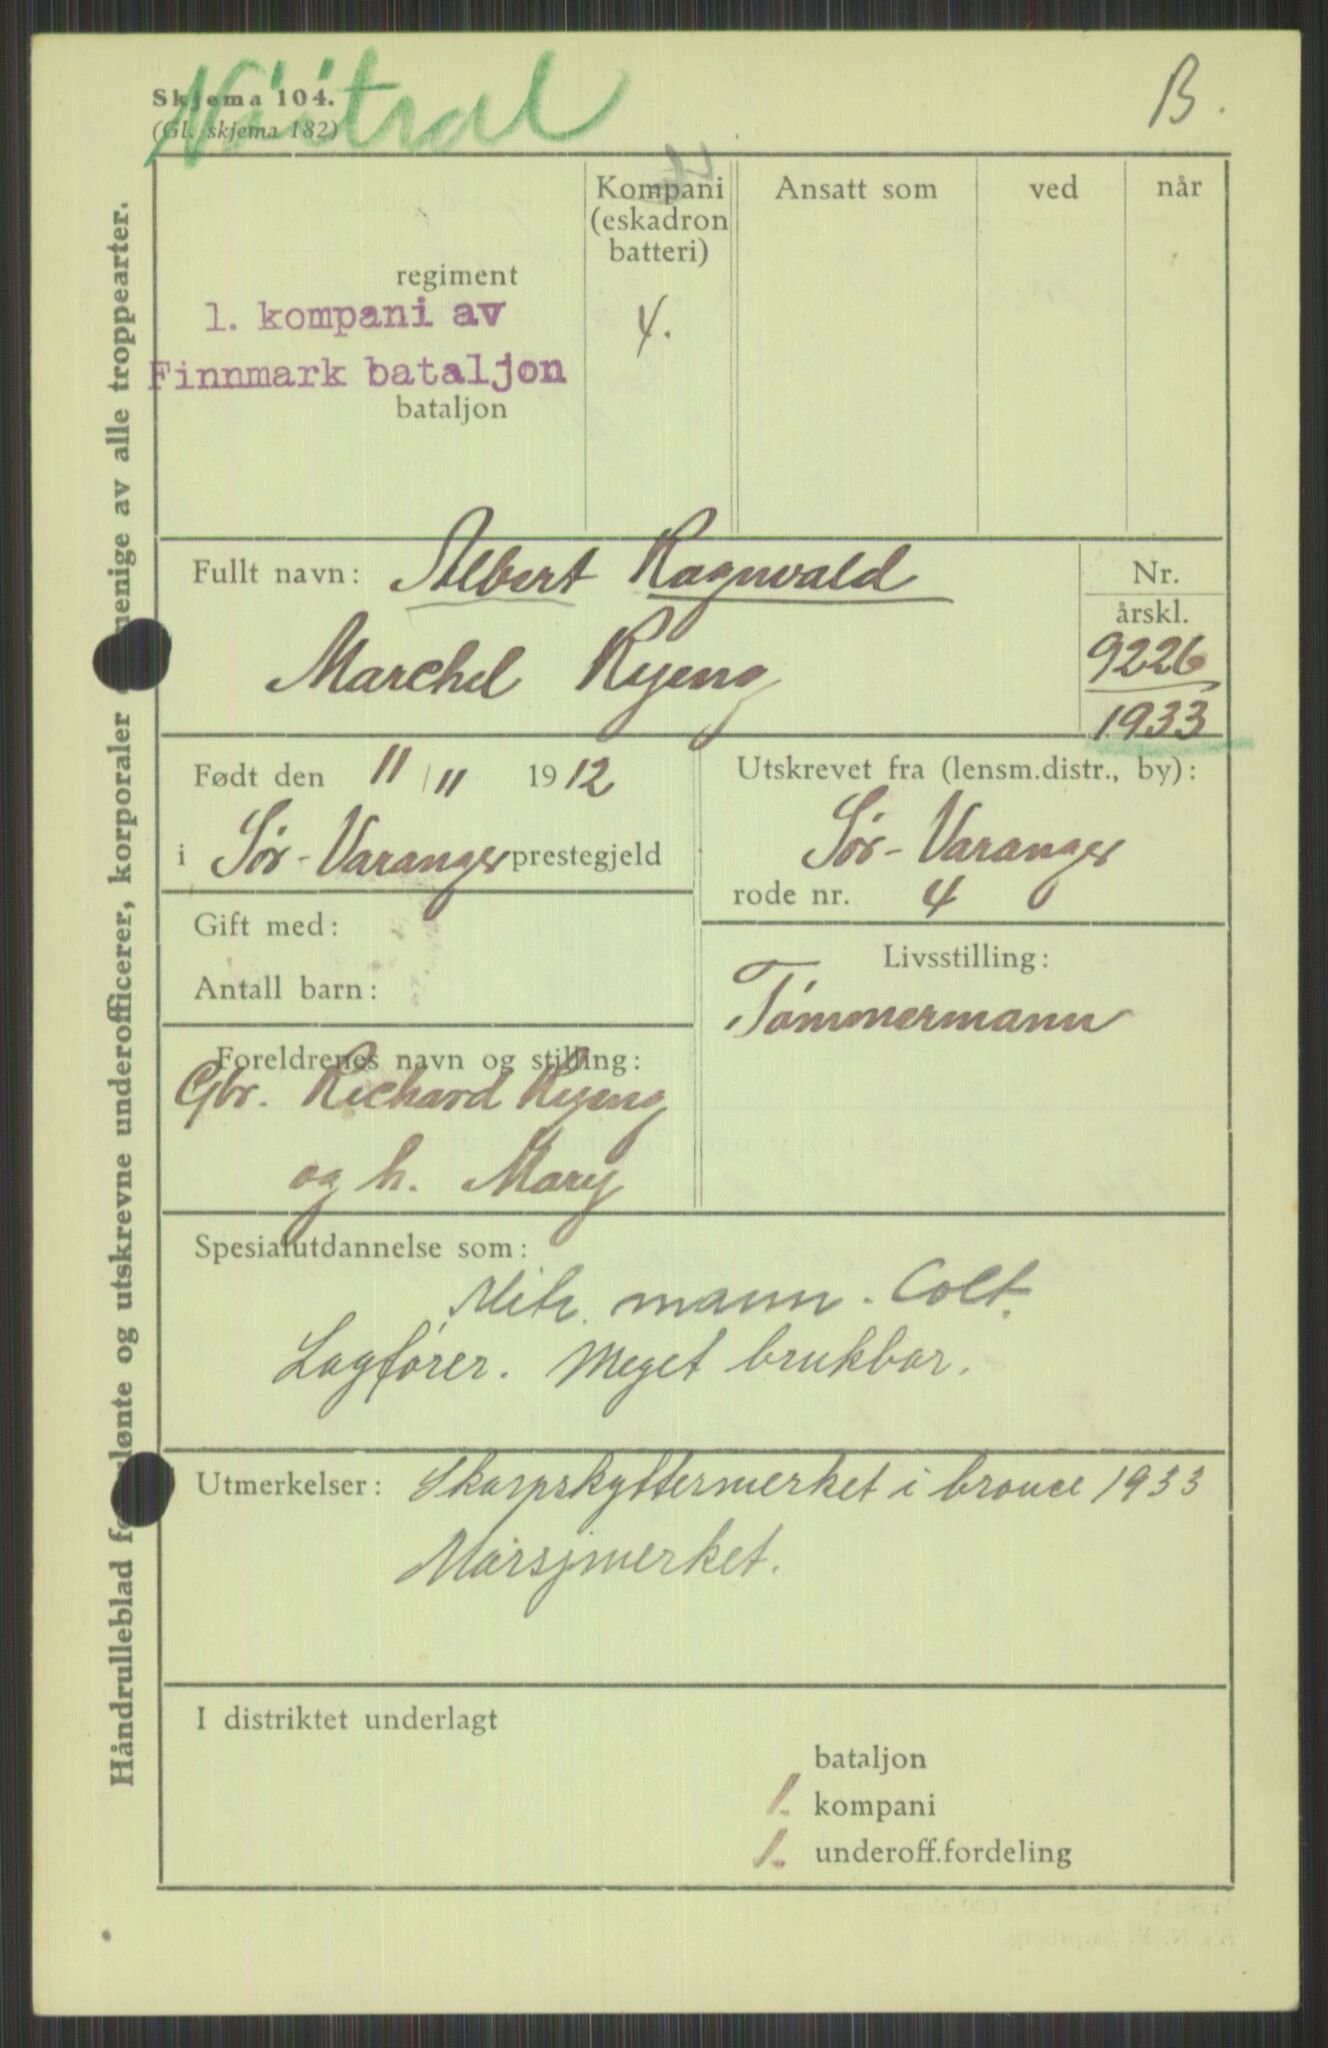 Nøitral
B.
Skjema 104.
(Gl. skjema 182)
Håndrulleblad for lønte og utskrevne underofficerer, korporaler menige av alle troppearter.
regiment
1. kompani av
Finnmark bataljon
bataljon
Kompani
(eskadron
batteri)
4.
Ansatt som
ved
når
Fullt navn: Albert Ragnvald
Marchel Ryeng
Nr.
årskl.
9226
1933
Født den 11/11 1912
i Sør-Varanger prestegjeld
Utskrevet fra (lensm.distr., by):
Sør-Varanger
rode nr. 4
Gift med:
Antall barn:
Livsstilling:
Tømmermann
Foreldrenes navn og stilling:
Gbr. Richard Ryeng
og h. Mary
Spesialutdannelse som:
Mitr. mann. Colt.
Lagfører. Meget brukbar.
Utmerkelser: Skarpskyttermerket i bronce 1933
Marsjmerket.
I distriktet underlagt
bataljon
1. kompani
1. underoff.fordeling